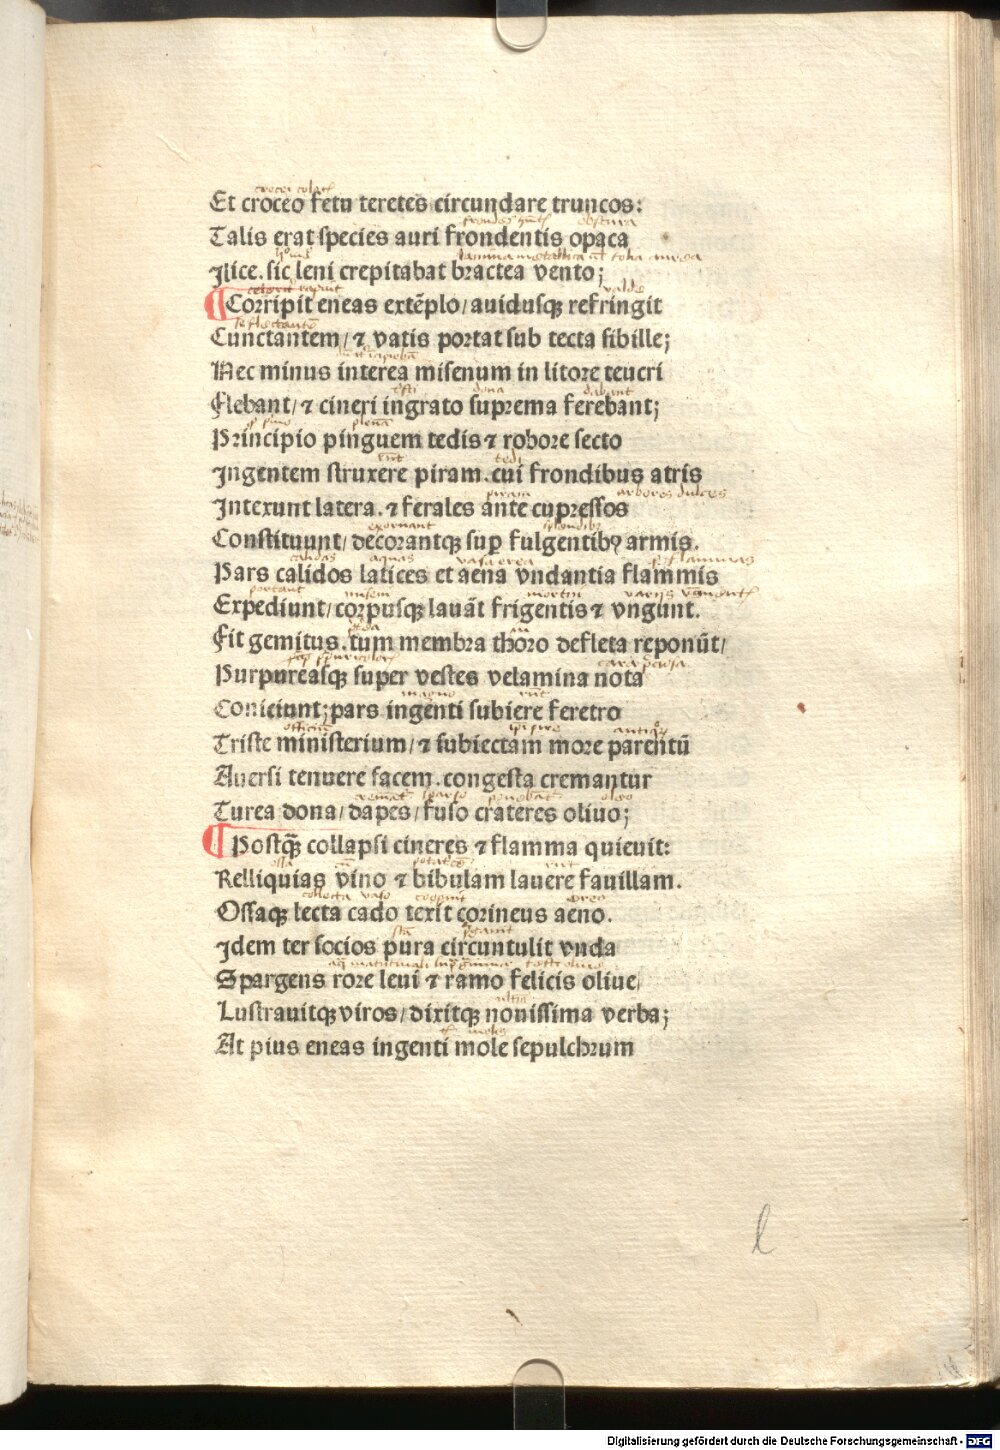 crocei coloris
Et croceo fetu teretes circundare truncos:
obscura
Talis erat species auri frondentis opaca
lamina metallica folia aurea
Jlice. sic leni crepitabat bractea vento;
rapuit valde
Corripit eneas extēplo/ auidusqꝫ refringit
Cunctantem/ ⁊ vatis portat sub tecta sibille;
Nec minus interea misenum in litore teucri
dona dabant
Flebant/ ⁊ cineri ingrato suprema ferebant;
plenā
Principio pinguem tedis ⁊ robore secto
Jngentem struxere piram. cui frondibus atris
piram arbores
Jntexunt latera. ⁊ ferales ante cupressos
exornant
Constituunt/ decorantqꝫ sup̱ fulgentibꝯ armis.
calidas aquas vasa erea flammas
Pars calidos latices et aena vndantia flammis
portant mortui
Expediunt/ corpusqꝫ lauāt frigentis ⁊ vngunt.
Fit gemitus. tum membra thoro defleta reponūt/
cara
Purpureasqꝫ super vestes velamina nota
magno
Coniciunt; pars ingenti subiere feretro
officiū
Triste ministerium/ ⁊ subiectam more parentū
Auersi tenuere facem. congesta cremantur
oleo
Turea dona/ dapes/ fuso crateres oliuo;
Postq̄ꝫ collapsi cineres ⁊ flamma quieuit:
ossa
Relliquias vino ⁊ bibulam lauere fauillam.
collecta vaso ereo
Ossaqꝫ lecta cado texit corineus aeno.
Jdem ter socios pura circuntulit vnda
Spargens rore leui ⁊ ramo felicis oliue/
Lustrauitqꝫ viros/ dixitqꝫ nouissima verba;
At pius eneas ingenti mole sepulchrum
l
Digitalisierung gefördert durch die Deutsche Forschungsgemeinschaft - DFG